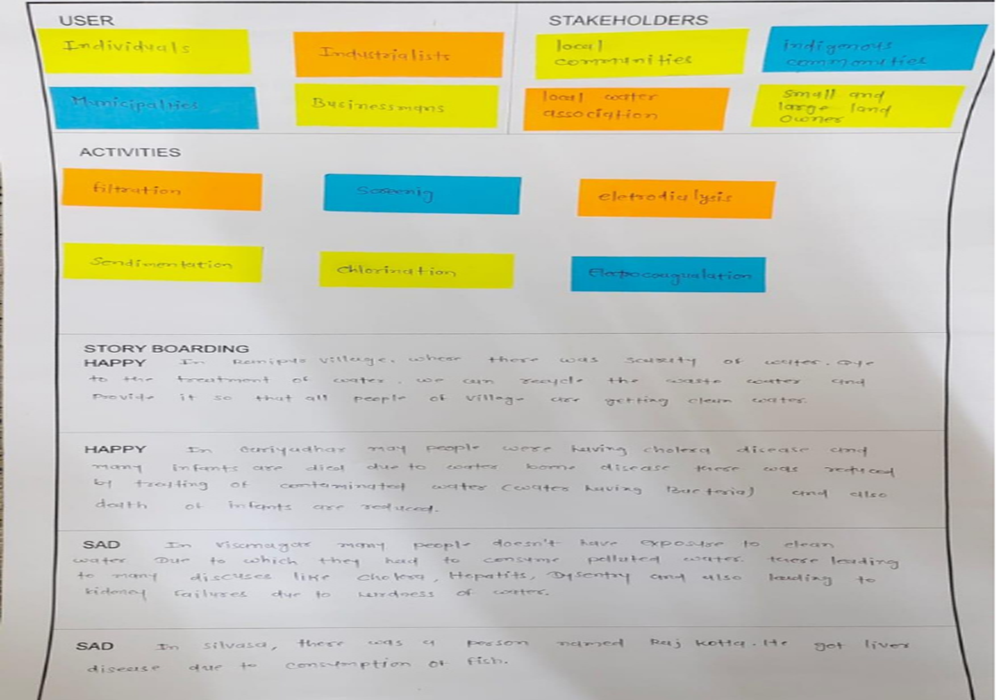 USER
STAKEHOLDERS
Individuals
Industrialists
local
communities
indigenous
commonuties
Municipalties
Businessmans
local water
association
Small and
large land
Owner
ACTIVITIES
filtration
Screenig
eletrodialysis
Sendimentation
Chlorination
STORY BOARDING
HAPPY In village, where there was scarsity of water. Due
to the treatment of water, we can recycle the waste water and
Provide it so that all people of village are getting clean water.
HAPPY In may people were having cholera disease and
many infants are died due to water borne disease there was reduced
by of contaminated water (water having Bacteria) and also
death of infants are reduced.
SAD In many people doesn't have exposure to clean
water Due to which they had to consume polluted water. these leading
to many diseases like Cholera, Hepatits, Dysentry and also leading to
kidney failures due to hardness of water.
SAD In silvasa, there was a person named Raj Kotta. He got liver
disease due to consumption of fish.